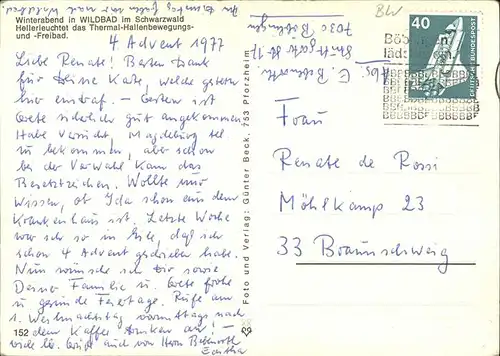 Winterabend in WILDBAD im Schwarzwald
Hellerleuchtet das Thermal-Hallenbewegungs-
und -Freibad.
4 Advent 1977
Liebe Renate! Besten Dank
für Deine Karte, welche gestern
hier eintraf. – Gestern ist
Grete sicherlich gut angekommen
Habe Versucht, Magdeburg tel
zu bekommen, aber schon
bei der Vorwahl kam das
Besetztzeichen. Wollte nur
wissen, ob Ida schon aus dem
Krankenhaus ist. Letzte Woche
war ich so in Eile, daß ich
schon 4 Advent geschrieben habe.
Nun wünsche ich Dir sowie
Deiner Familie u. Grete frohe
u gesunde Feiertage. Rufe am
1. Weihnachtstag vormittags nach
dem Kaffee trinken an! –
viele lb. Grüße auch von Herrn
152
Foto und Verlag: Günter Beck, 753 Pforzheim
Abs:
7030 Böblingen
BW
40
DEUTSCHE BUNDESPOST
Frau
Renate de Rossi
Möhlkamp 23
33 Braunschweig